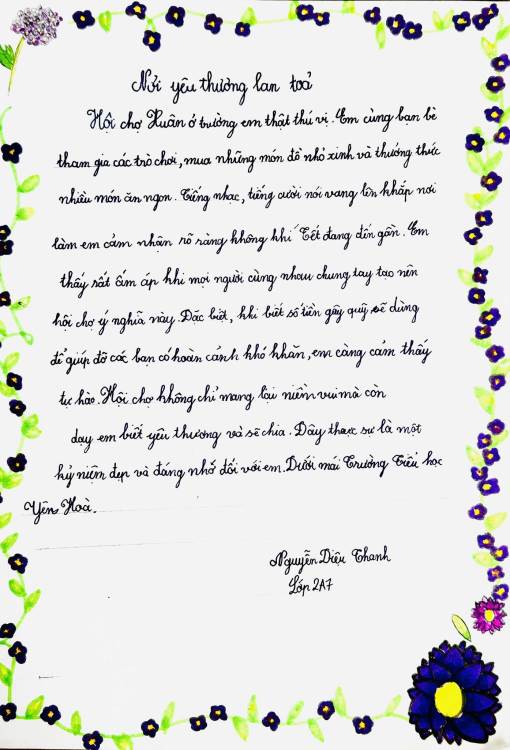 Nơi yêu thương lan toả
Hội chợ Xuân ở trường em thật thú vị. Em cùng bạn bè
tham gia các trò chơi, mua những món đồ nhỏ xinh và thưởng thức
nhiều món ăn ngon. Tiếng nhạc, tiếng cười nói vang lên khắp nơi
làm em cảm nhận rõ ràng không khí Tết đang đến gần. Em
thấy rất ấm áp khi mọi người cùng nhau chung tay tạo nên
hội chợ ý nghĩa này. Đặc biệt, khi biết số tiền gây quỹ sẽ dùng
để giúp đỡ các bạn có hoàn cảnh khó khăn, em càng cảm thấy
tự hào. Hội chợ không chỉ mang lại niềm vui mà còn
dạy em biết yêu thương và sẻ chia. Đây thực sự là một
kỷ niệm đẹp và đáng nhớ đối với em. Dưới mái Trường Tiểu học
Yên Hoà.
Nguyễn Diệu Thanh
Lớp 2A7